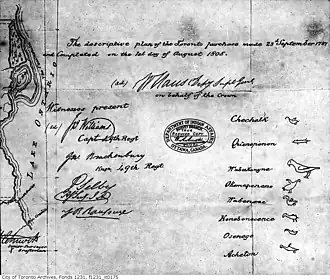 The descriptive plan of the Toronto purchase made 23d September 1787
and Completed on the 1st day of August 1805.
(sd) W Claus Dep'y Supt Genl
on behalf of the Crown
Witnesses present
(sd) Jn Williams
Capt 49th Regt
Jno Brackenbury
Ensn 49th Regt
P Selby
LAKE ONTARIO
DEPARTMENT OF INDIAN AFFAIRS
SURVEY BRANCH
OTTAWA, CANADA.
Chechalk
Quinepenon
Wabukanyne
Okemapenesse
Wabenose
Kenebonecence
Osenego
Acheton
City of Toronto Archives, Fonds 1231, f1231_it0175